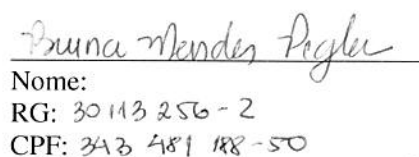 Bruna Mendes Pegler
Nome:
RG: 30 113 256-2
CPF: 343 481 188-50